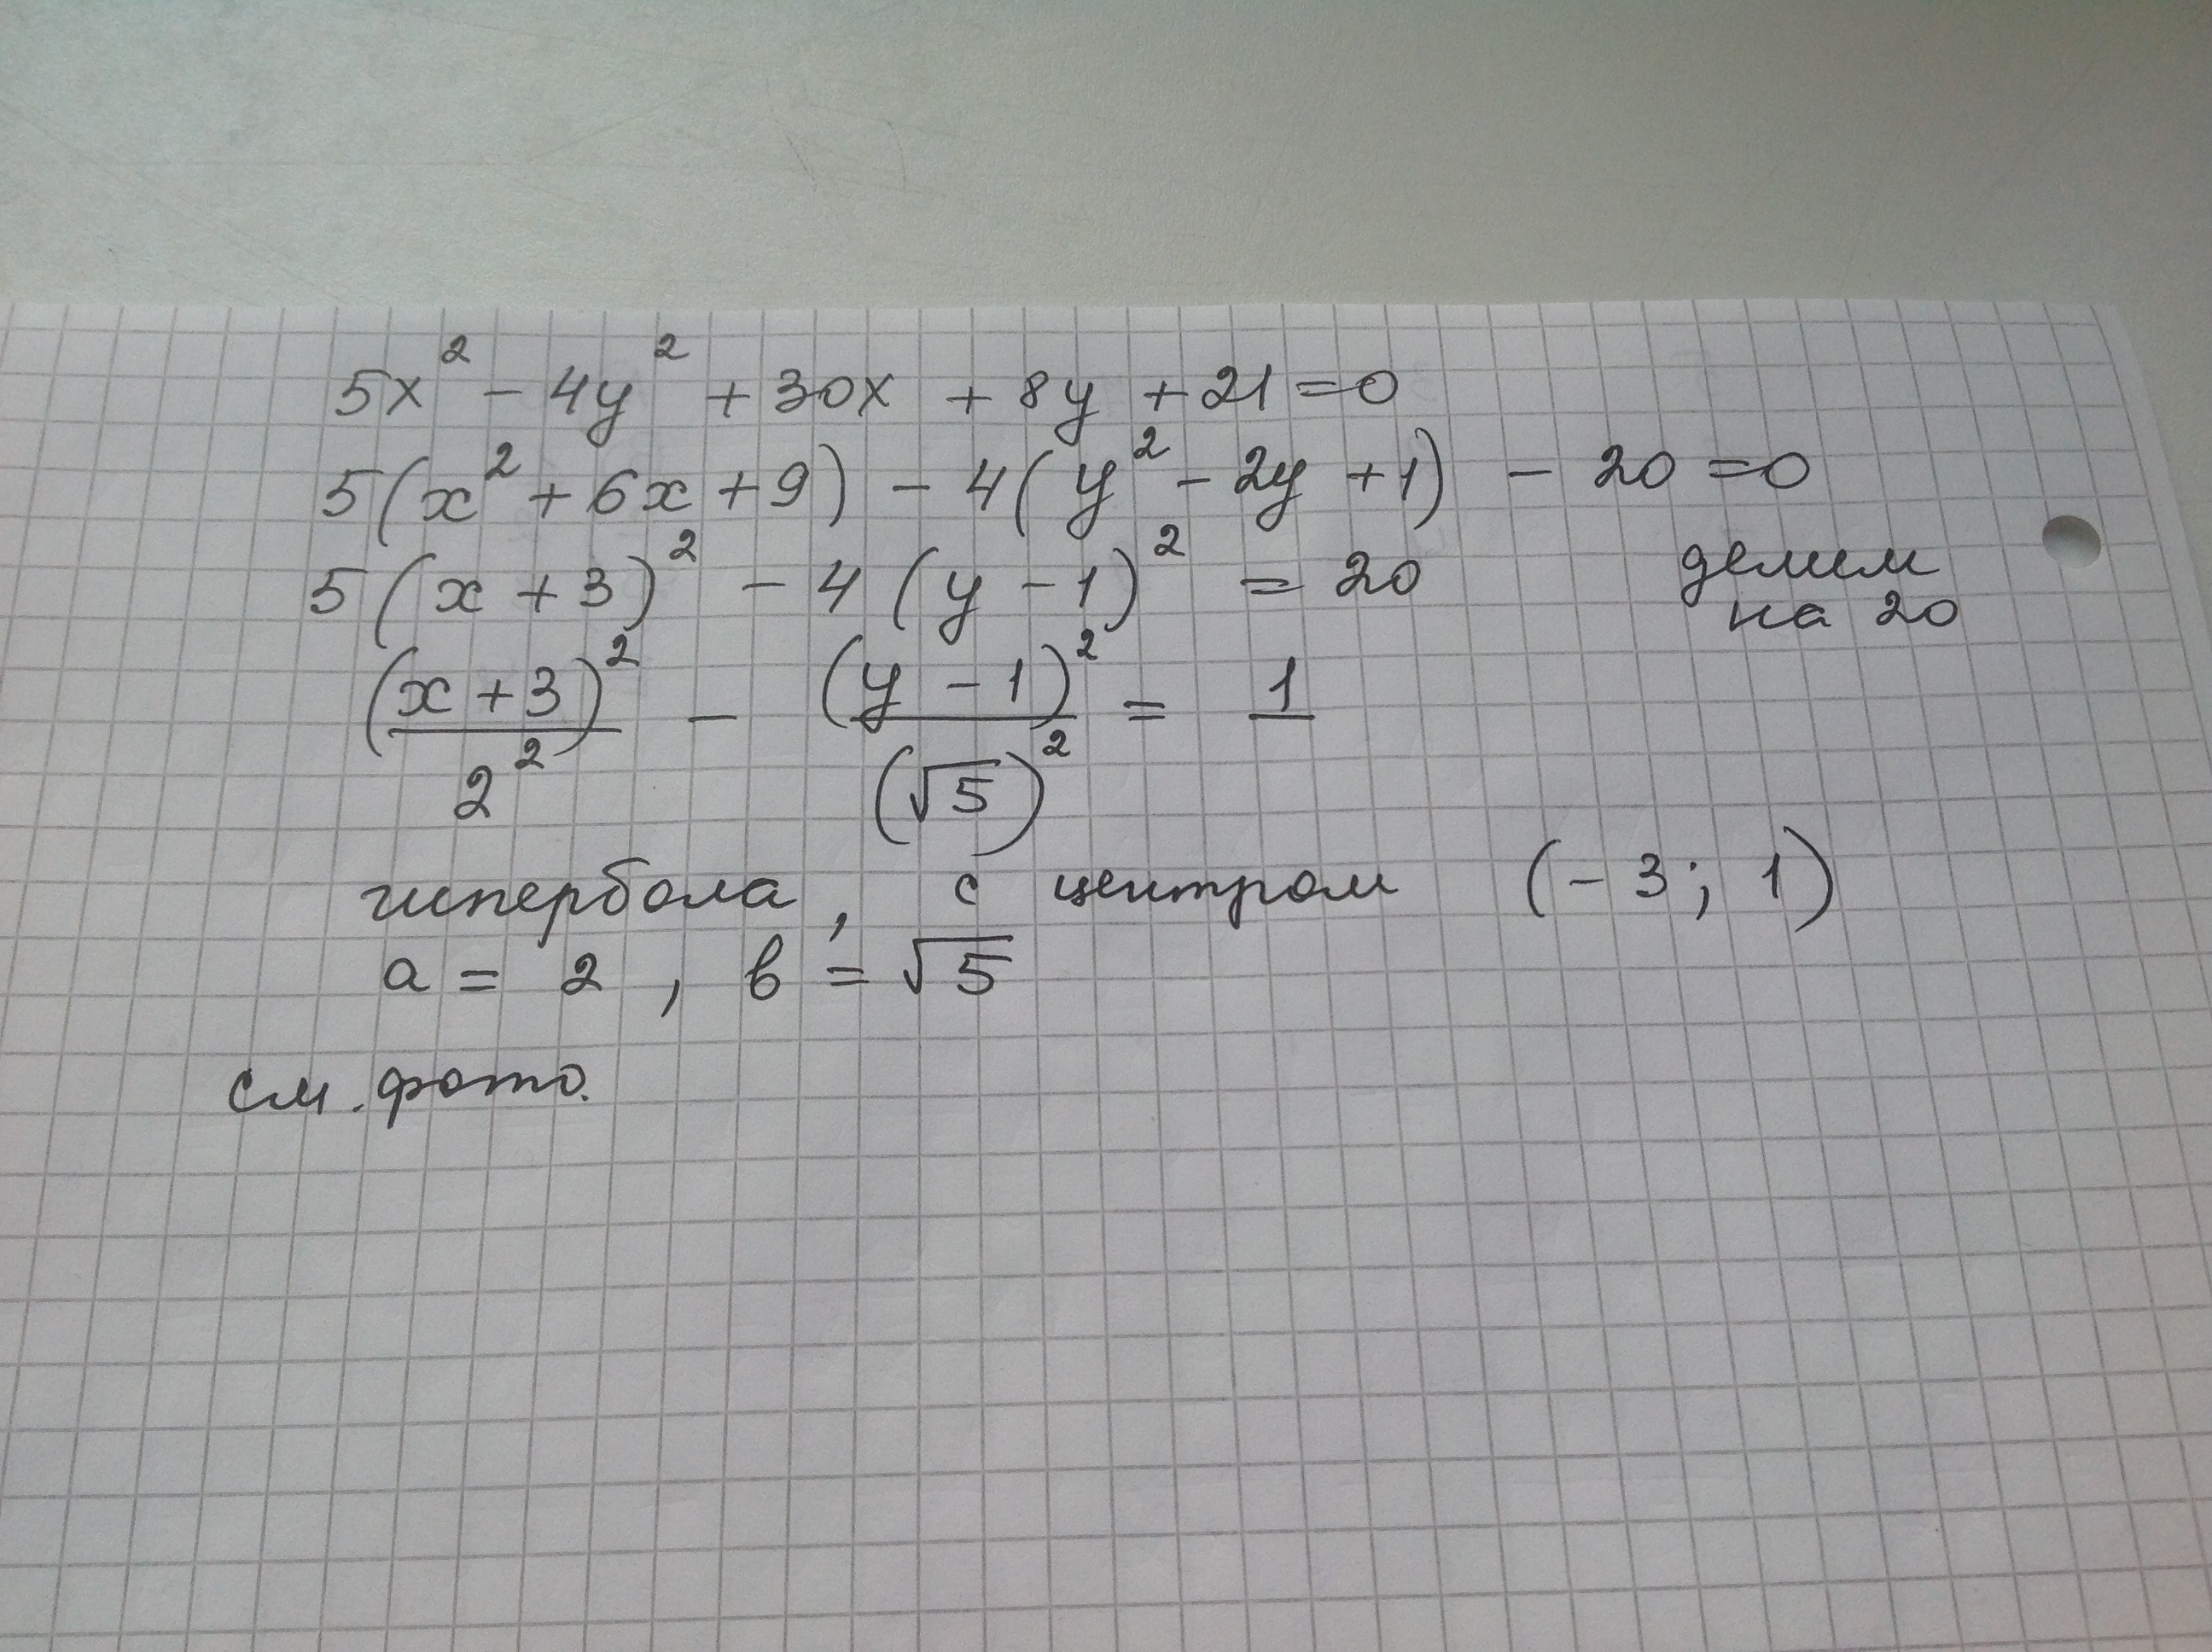 5x² - 4y² + 30x + 8y + 21 = 0
5(x² + 6x + 9) - 4(y² - 2y + 1) - 20 = 0
5(x + 3)² - 4(y - 1)² = 20 делим
на 20
(x + 3)²/2² - (y - 1)²/(√5)² = 1
гипербола, с центром (-3; 1)
a = 2, b = √5
см. фото.